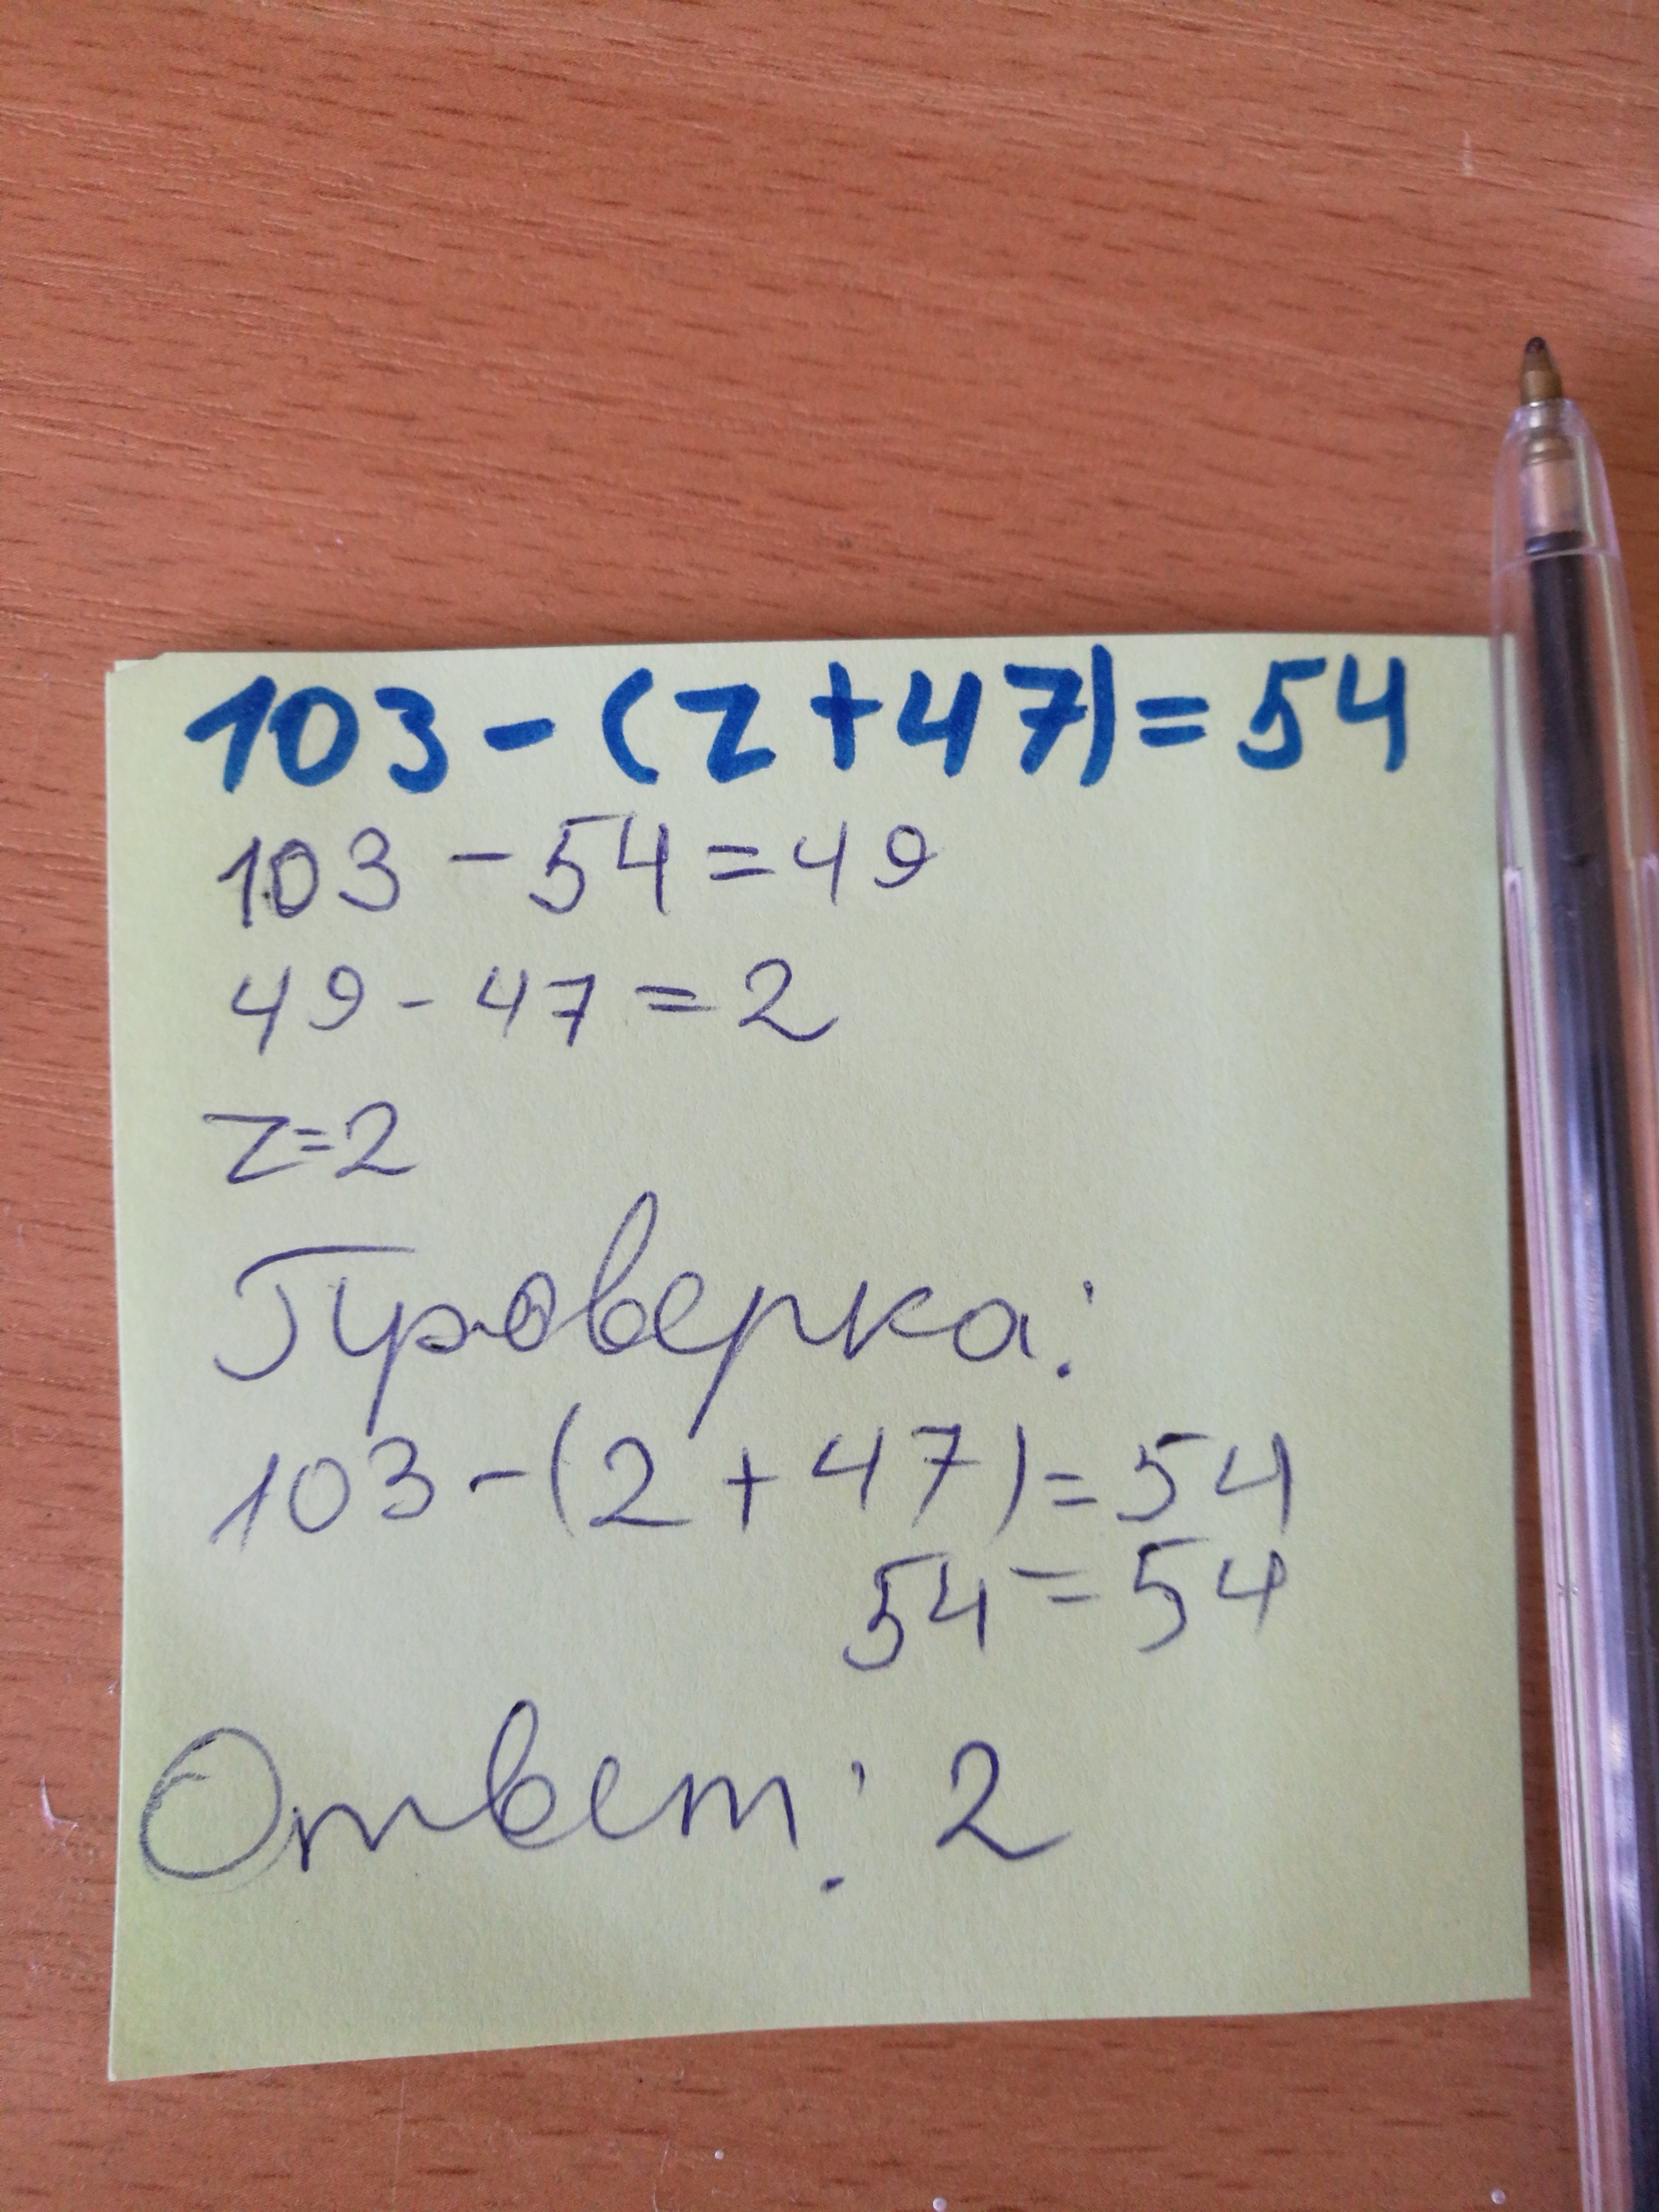 103 - (z + 47) = 54
103 - 54 = 49
49 - 47 = 2
z = 2
Проверка:
103 - (2 + 47) = 54
54 = 54
Ответ: 2